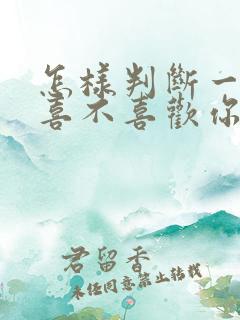 怎樣判斷一
喜不喜歡你
君留香
未经同意禁止转载